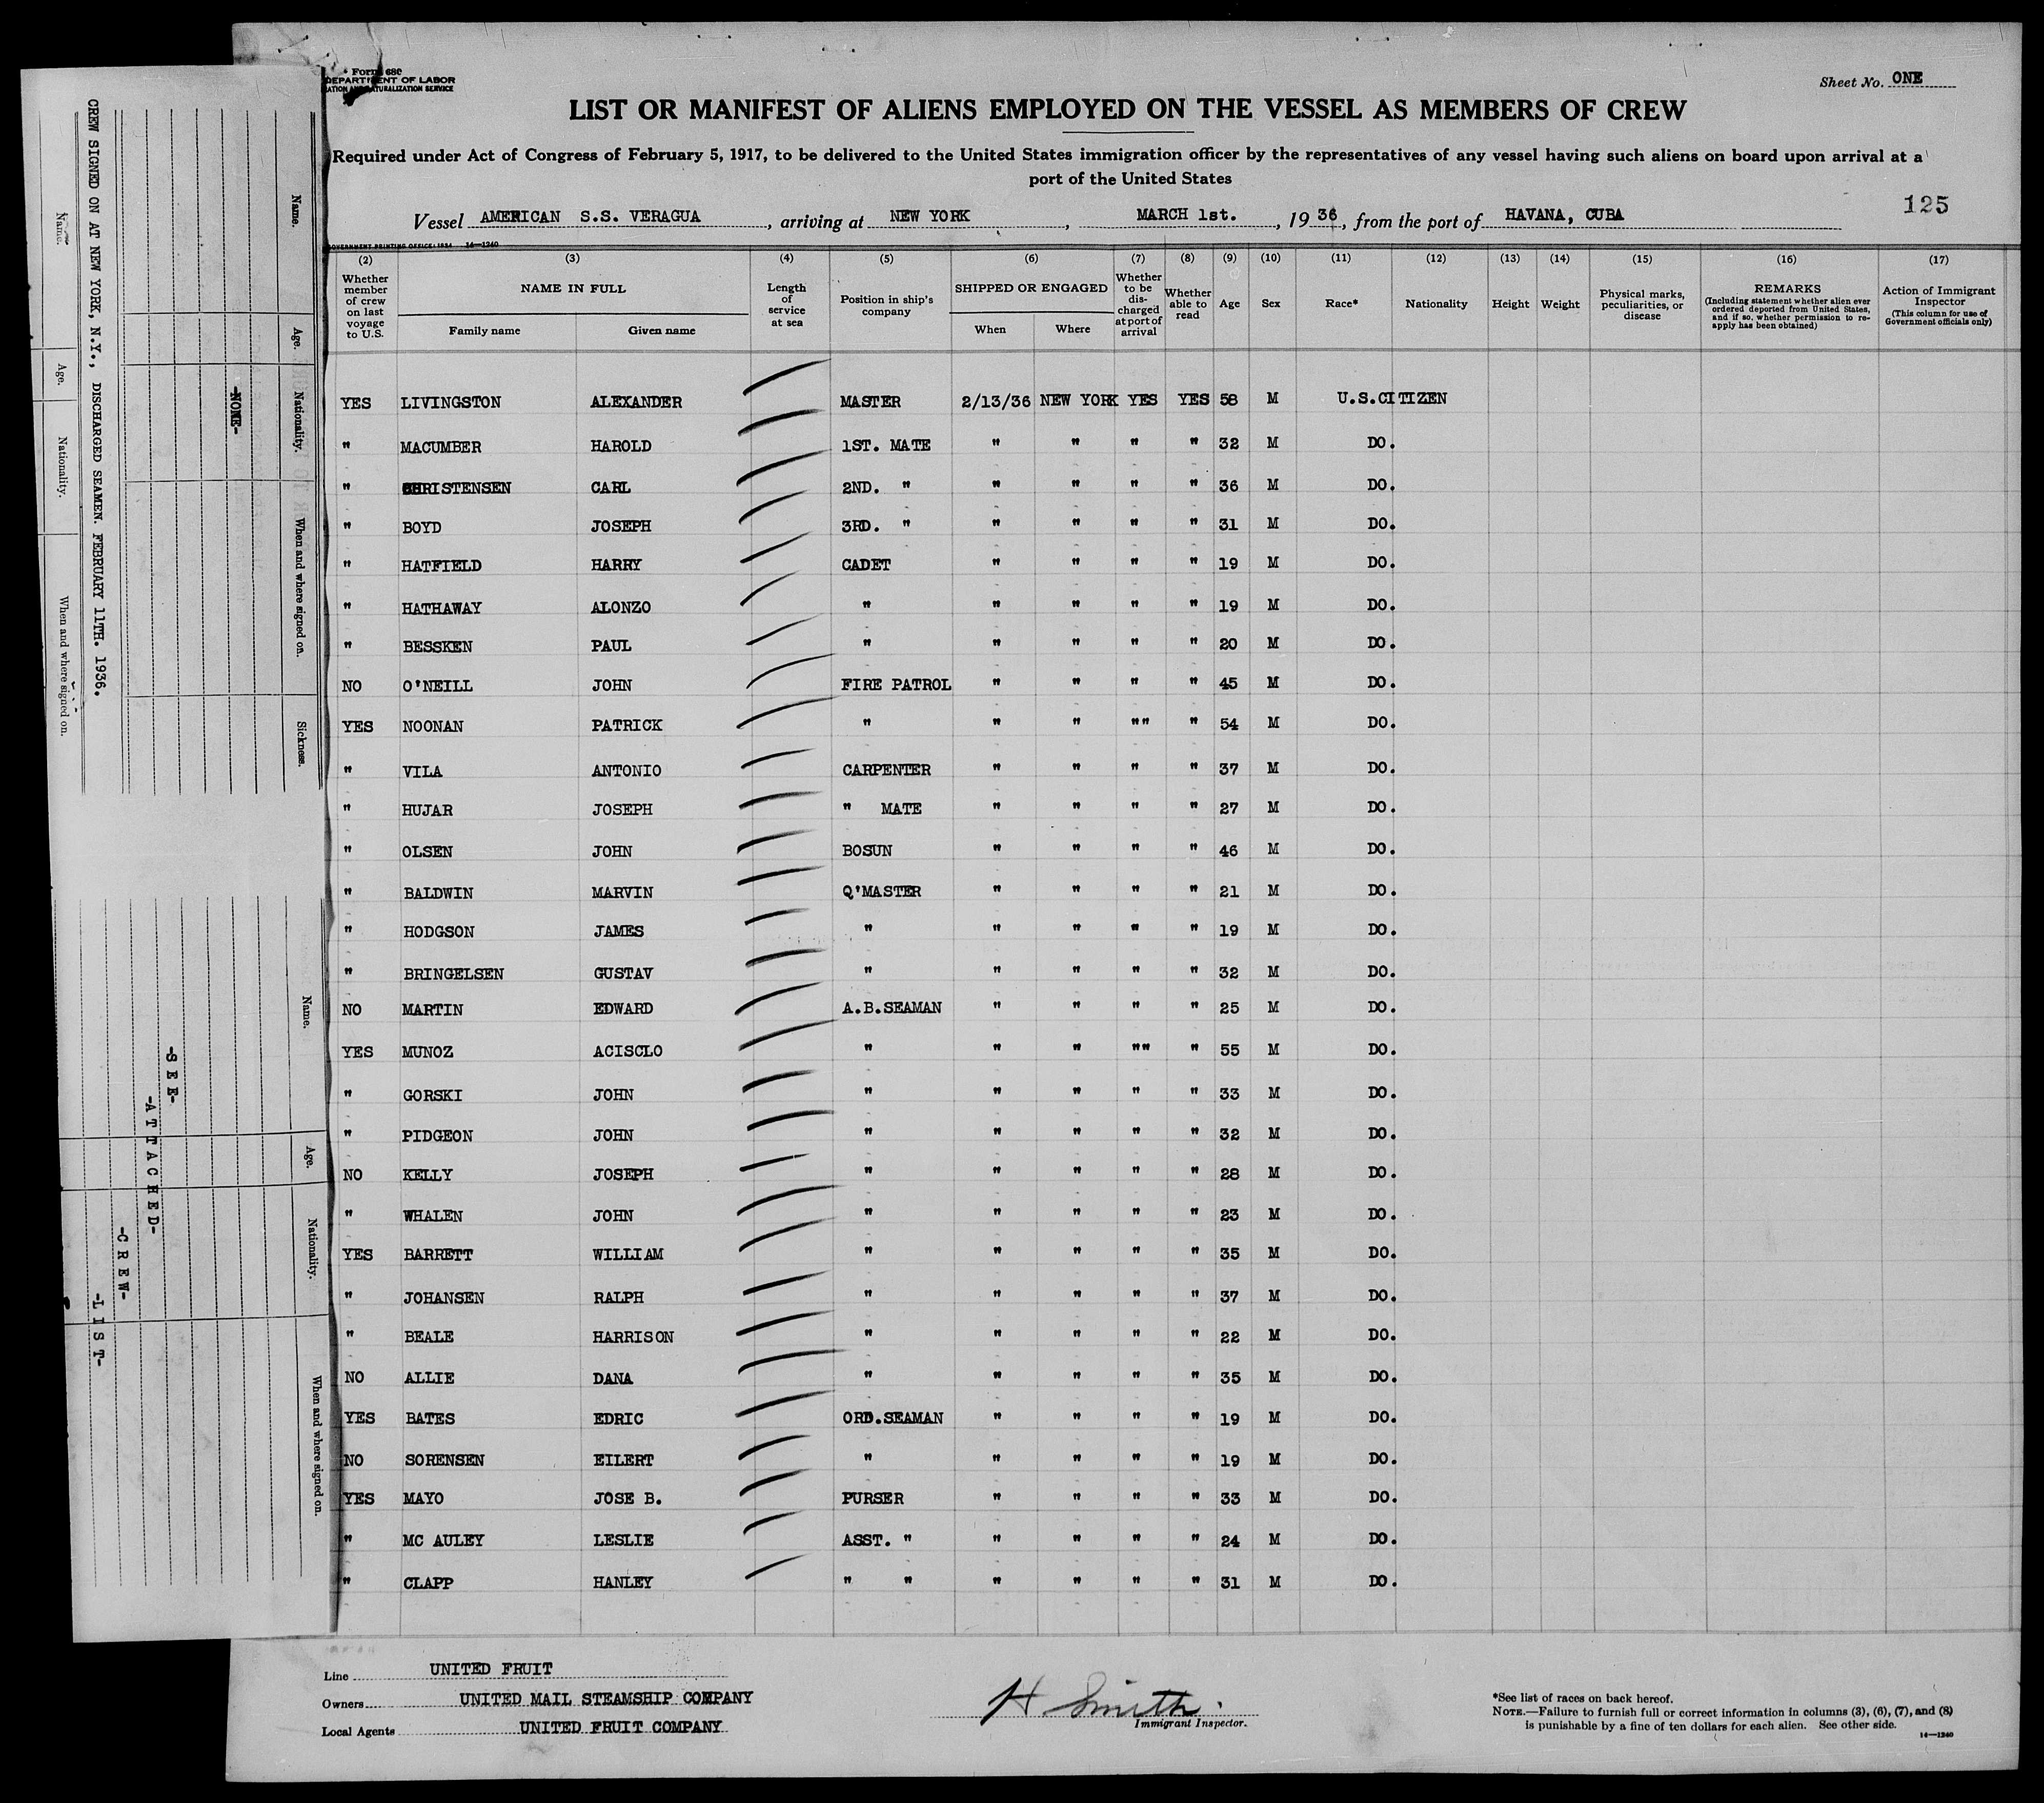 Form 680
DEPARTMENT OF LABOR
NATURALIZATION SERVICE
Sheet No. ONE
LIST OR MANIFEST OF ALIENS EMPLOYED ON THE VESSEL AS MEMBERS OF CREW
Required under Act of Congress of February 5, 1917, to be delivered to the United States immigration officer by the representatives of any vessel having such aliens on board upon arrival at a
port of the United States
125
Vessel AMERICAN S.S. VERAGUA, arriving at NEW YORK, MARCH 1st., 1936, from the port of HAVANA, CUBA
GOVERNMENT PRINTING OFFICE: 1934 14—1240
(2) (3) (4) (5) (6) (7) (8) (9) (10) (11) (12) (13) (14) (15) (16) (17)
Whether member of crew on last voyage to U.S.
NAME IN FULL
Family name Given name
Length of service at sea
Position in ship's company
SHIPPED OR ENGAGED
When Where
Whether to be discharged at port of arrival
Whether able to read
Age
Sex
Race*
Nationality
Height
Weight
Physical marks, peculiarities, or disease
REMARKS
(Including statement whether alien ever ordered deported from United States, and if so, whether permission to re-apply has been obtained)
Action of Immigrant Inspector
(This column for use of Government officials only)
YES LIVINGSTON ALEXANDER MASTER 2/13/36 NEW YORK YES YES 58 M U.S.CITIZEN
" MACUMBER HAROLD 1ST. MATE " " " " 32 M DO.
" CHRISTENSEN CARL 2ND. " " " " " 36 M DO.
" BOYD JOSEPH 3RD. " " " " " 31 M DO.
" HATFIELD HARRY CADET " " " " 19 M DO.
" HATHAWAY ALONZO " " " " " 19 M DO.
" BESSKEN PAUL " " " " " 20 M DO.
NO O'NEILL JOHN FIRE PATROL " " " " 45 M DO.
YES NOONAN PATRICK " " " "" " 54 M DO.
" VILA ANTONIO CARPENTER " " " " 37 M DO.
" HUJAR JOSEPH " MATE " " " " 27 M DO.
" OLSEN JOHN BOSUN " " " " 46 M DO.
" BALDWIN MARVIN Q'MASTER " " " " 21 M DO.
" HODGSON JAMES " " " " " 19 M DO.
" BRINGELSEN GUSTAV " " " " " 32 M DO.
NO MARTIN EDWARD A.B.SEAMAN " " " " 25 M DO.
YES MUNOZ ACISCLO " " " "" " 55 M DO.
" GORSKI JOHN " " " " " 33 M DO.
" PIDGEON JOHN " " " " " 32 M DO.
NO KELLY JOSEPH " " " " " 28 M DO.
" WHALEN JOHN " " " " " 23 M DO.
YES BARRETT WILLIAM " " " " " 35 M DO.
" JOHANSEN RALPH " " " " " 37 M DO.
" BEALE HARRISON " " " " " 22 M DO.
NO ALLIE DANA " " " " " 35 M DO.
YES BATES EDRIC ORD.SEAMAN " " " " 19 M DO.
NO SORENSEN EILERT " " " " " 19 M DO.
YES MAYO JOSE B. PURSER " " " " 33 M DO.
" MC AULEY LESLIE ASST. " " " " " 24 M DO.
" CLAPP HANLEY " " " " " " 31 M DO.
Line UNITED FRUIT
Owners UNITED MAIL STEAMSHIP COMPANY
Local Agents UNITED FRUIT COMPANY
H Smith
Immigrant Inspector.
*See list of races on back hereof.
NOTE.—Failure to furnish full or correct information in columns (3), (6), (7), and (8)
is punishable by a fine of ten dollars for each alien. See other side.
14—1240
CREW SIGNED ON AT NEW YORK, N.Y., DISCHARGED SEAMEN. FEBRUARY 11TH. 1936.
Name. Age. Nationality. When and where signed on. Sickness.
-NONE-
Name. Age. Nationality. When and where signed on.
Name. Age. Nationality. When and where signed on.
-SEE-
-ATTACHED-
-CREW-
-LIST-